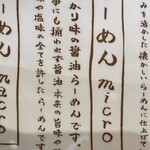 みを活かした懐しいらーめんに仕上げて
ーめん micro
かり味の醤油らーめんです。
事にも捕われず醤油本来の旨味や
や塩味の全てを許したらーめんです
ーめん macro